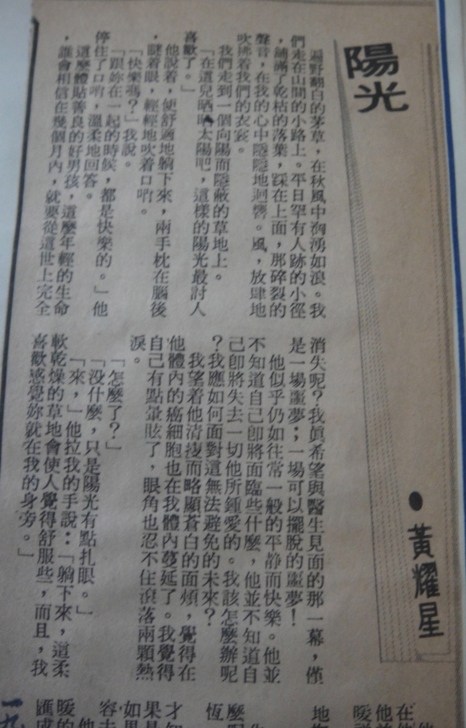 陽光
●黃耀星
遍野翻白的茅草，在秋風中洶湧如浪。我
們走在山間的小路上。平日罕有人跡的小徑
，鋪滿了乾枯的落葉，踩在上面，那碎裂的
聲音，在我的心中隱隱地迴響。風，放肆地
吹拂着我們的衣裳。
我們走到一個向陽而隱蔽的草地上。
「在這兒晒晒太陽吧，這樣的陽光最討人
喜歡了。」
他說着，便舒適地躺下來，兩手枕在腦後
，瞇着眼，輕輕地吹着口哨。
「快樂嗎？」我說。
「跟妳在一起的時候，都是快樂的。」他
停住了口哨，溫柔地回答。
這麼體貼善良的好男孩，這麼年輕的生命
，誰會相信在幾個月內，就要從這世上完全
消失呢？我眞希望與醫生見面的那一幕，僅
是一場噩夢；一場可以擺脫的噩夢！
他似乎仍如往常一般的平靜而快樂。他並
不知道自己卽將面臨些什麼，他並不知道自
己卽將失去一切他所鍾愛的。我該怎麼辦呢
？我應如何面對這無法避免的未來？
我望着他清瘦而略顯蒼白的面頰，覺得在
他體內的癌細胞也在我體內蔓延了。我覺得
自己有點暈眩了，眼角也忍不住滾落兩顆熱
淚。
「怎麼了？」
「沒什麼，只是陽光有點扎眼。」
「來，」他拉我的手說：「躺下來，這柔
軟乾燥的草地會使人覺得舒服些，而且，我
喜歡感覺妳就在我的身旁。」